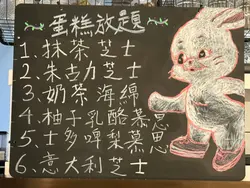 蛋糕放題
1.抹茶芝士
2.朱古力芝士
3.奶茶海綿
4.柚子乳酪慕思
5.士多啤梨慕思
6.意大利芝士